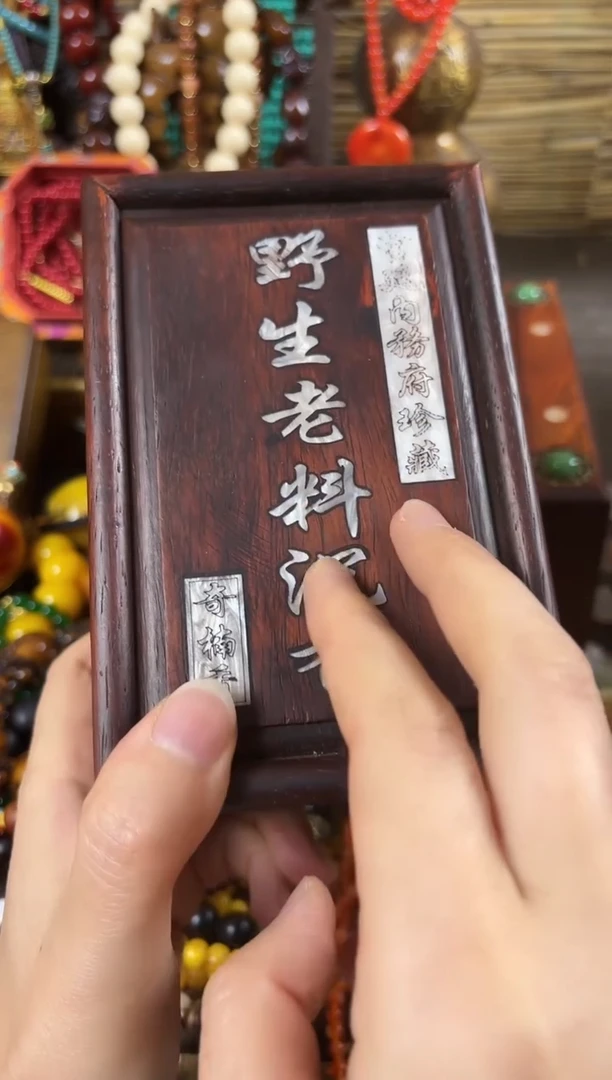 内務府珍藏
野生老料沉
奇楠